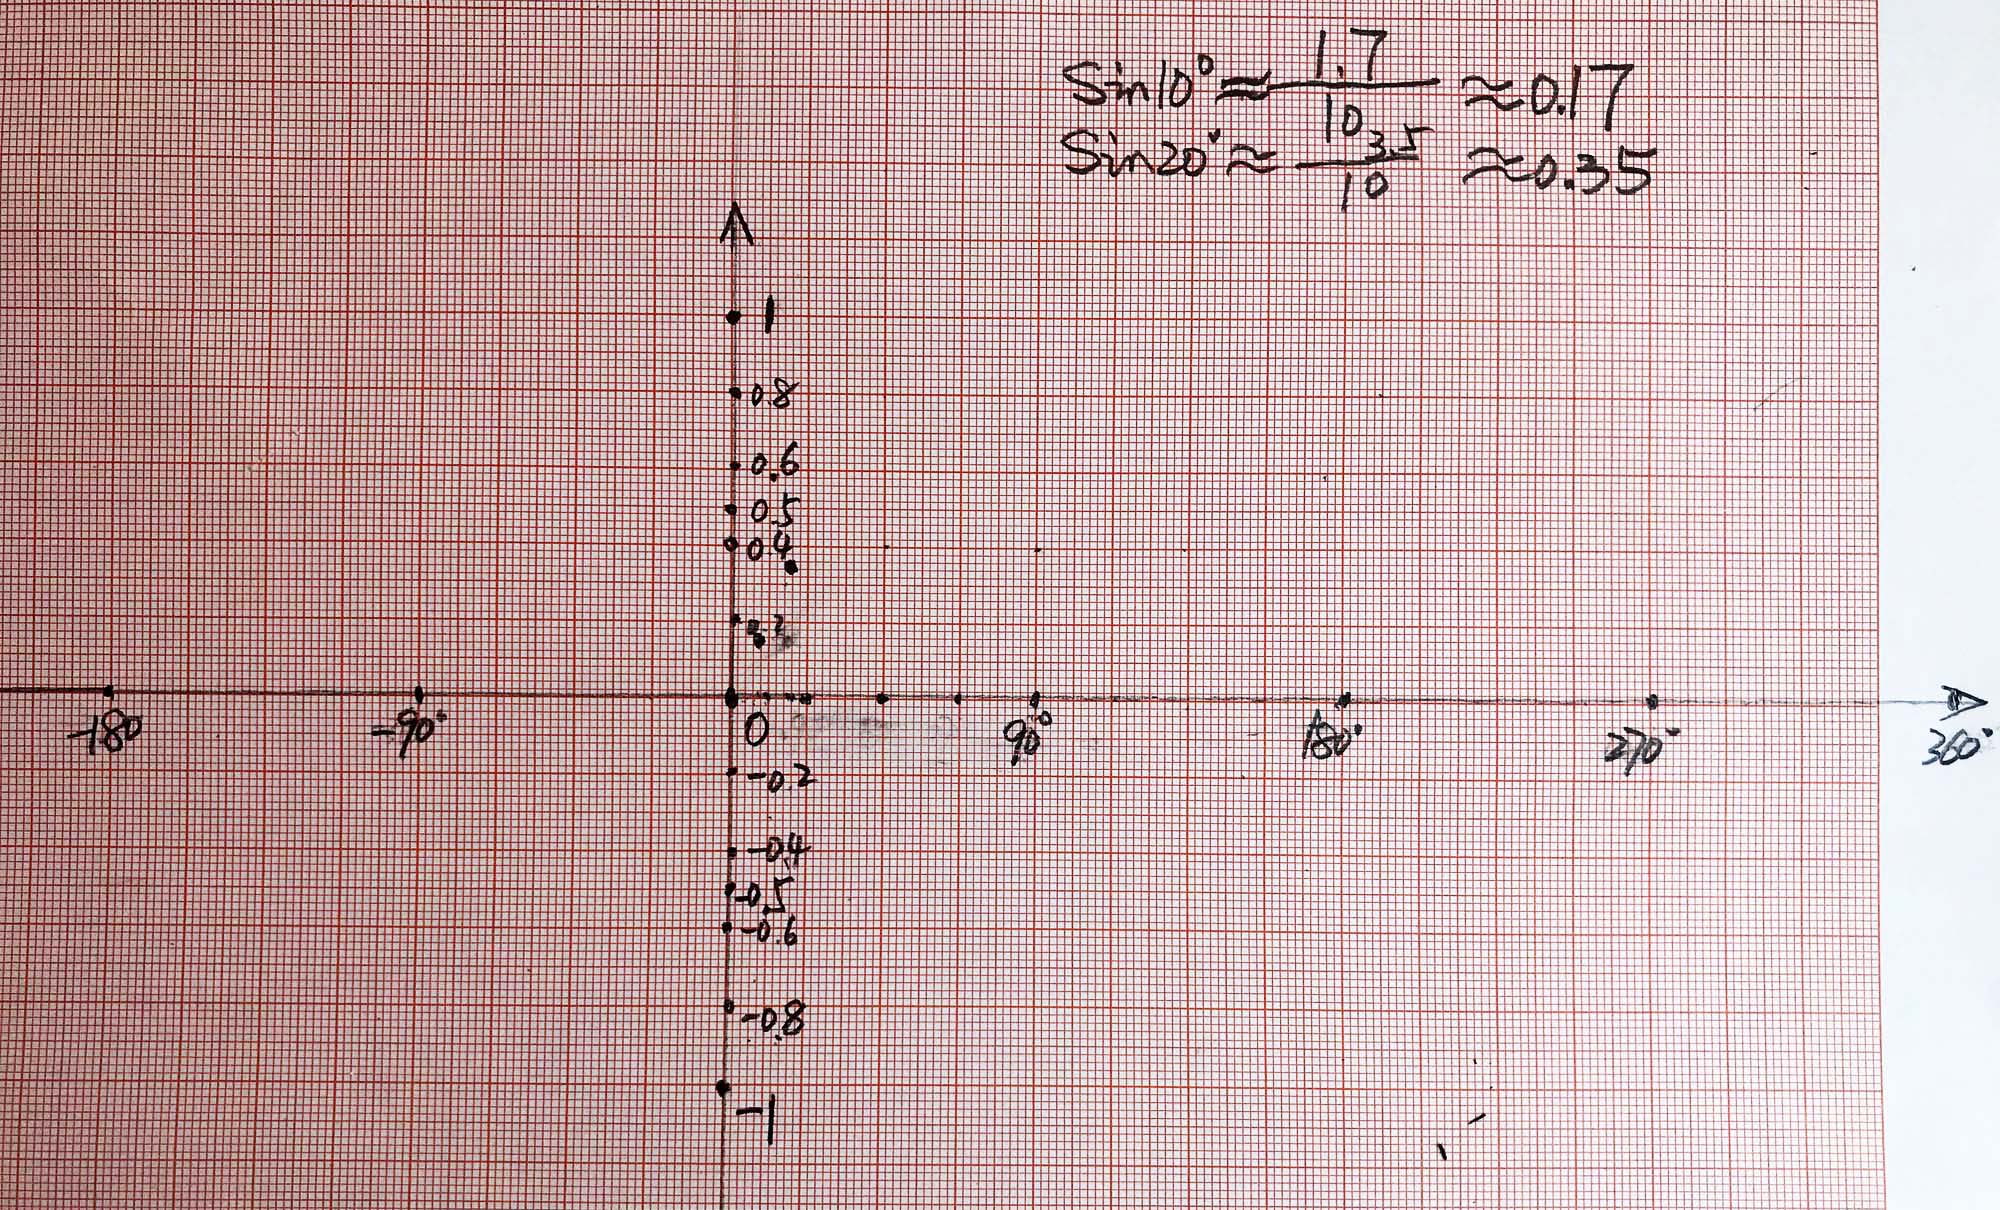 Sin10° ≈ 1.7/10 ≈ 0.17
Sin20° ≈ 3.5/10 ≈ 0.35
1
0.8
0.6
0.5
0.4
-180 -90° 0 90° 180° 270° 360°
-0.2
-0.4
-0.5
-0.6
-0.8
-1